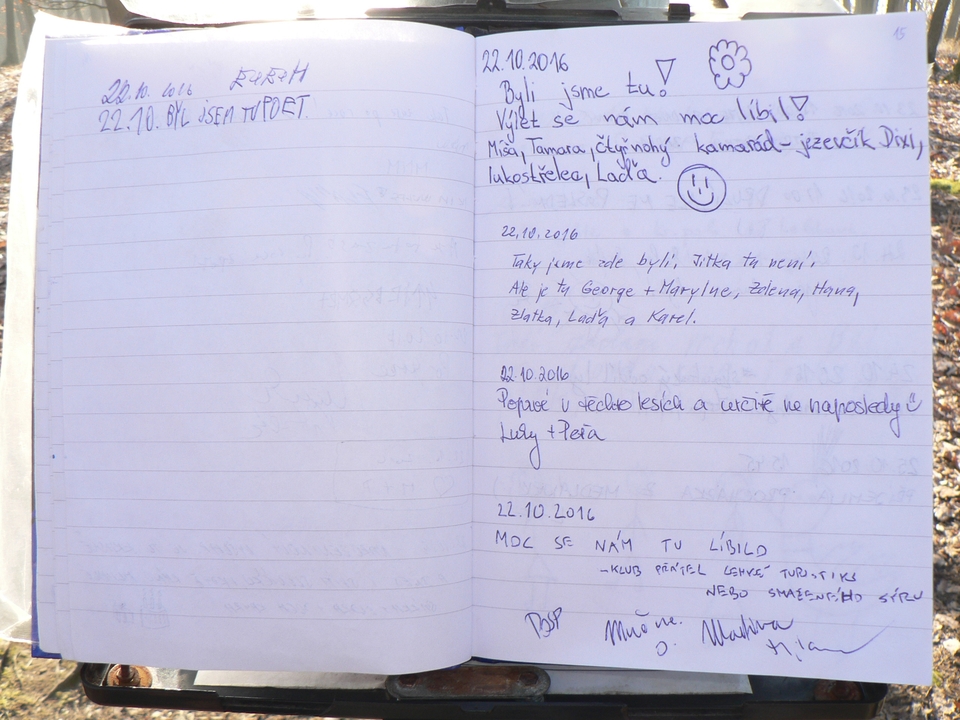 22.10. 2016
22.10. BYL JSEM TU POET.
15
22.10.2016
Byli jsme tu!
Výlet se nám moc líbil!
Míša, Tamara, čtyřnohý kamarád - jezevčík Dixi,
lukostřelec, Laďa.
22.10.2016
Taky jsme zde byli, Jitka tu není.
Ale je tu George + Marylne, Zdena, Hana,
Zlatka, Laďa a Karel.
22.10.2016
Poprvé v těchto lesích a určitě ne naposledy
Lucy + Peťa
22.10.2016
MOC SE NÁM TU LÍBILO
- KLUB PŘÁTEL LEHKÉ TURISTIKY
NEBO SMAŽENÉHO SÝRU